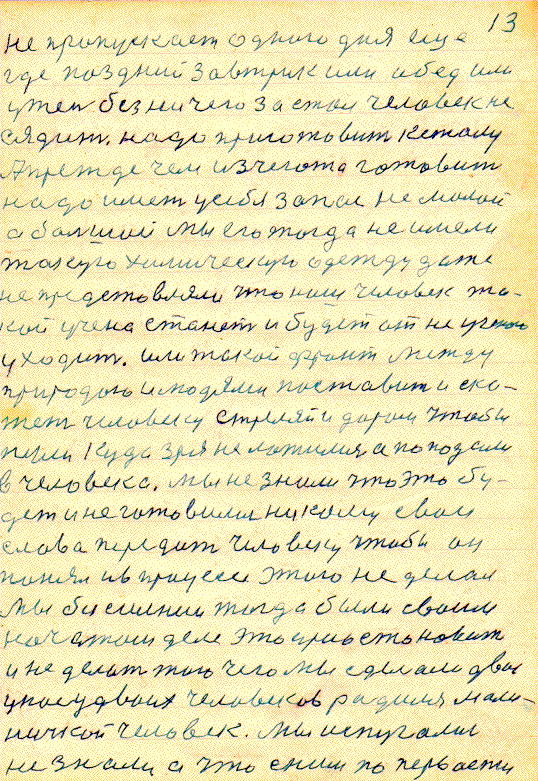 13
не пропускает одного дня еще
где поздний завтрик или обед или
ужен без ничего за стол человек не
сядит. надо приготовит к столу
А прежде чем изчегота готовит
надо имет усебя запас не малой
а большой мы его тогда не имели
такую химическую одежду даже
не представляли что наш человек та-
кой учена станет и будет от не
уходит. или такой фронт между
природою и людями поставит и ска-
жет человеку стреляй и даром чтобы
пули куда зря не ложился а поподали
в человека. мы не знали что это бу-
дет и не готовились никому свои
слова передат человеку чтобы он
понял и в процессе этого не делал
мы бы сильнии тогда были своим
начатом деле это приостоновит
и не делат того чего мы сделали двое
у нас у двоих человеков радился мале-
ничкой человек. мы испугались
не знали а что с ним по первости